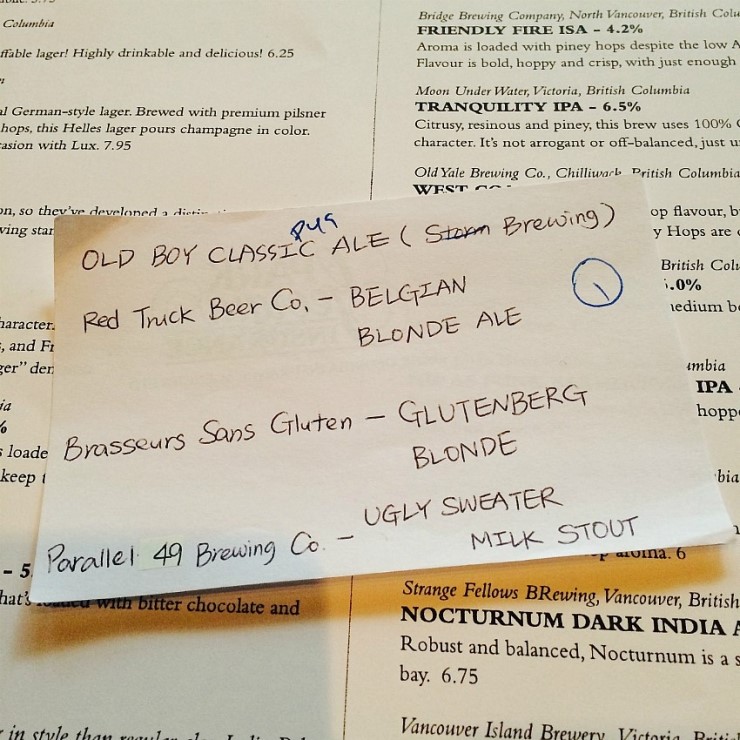 Columbia
ffable lager! Highly drinkable and delicious! 6.25
al German-style lager. Brewed with premium pilsner
hops, this Helles lager pours champagne in color.
asion with Lux. 7.95
on, so they've developed a
ving star
haracter.
, and Fr
ger" den
ia
%
s loade
keep t
- 5
hat's loaded with bitter chocolate and
in style than regular
Bridge Brewing Company, North Vancouver, British Colu
FRIENDLY FIRE ISA - 4.2%
Aroma is loaded with piney hops despite the low A
Flavour is bold, hoppy and crisp, with just enough
Moon Under Water, Victoria, British Columbia
TRANQUILITY IPA - 6.5%
Citrusy, resinous and piney, this brew uses 100% C
character. It's not arrogant or off-balanced, just u
Old Yale Brewing Co., Chilliwack British Columbia
WEST
op flavour, b
y Hops are
British Colu
.0%
medium b
umbia
IPA
hopp
bia
aroma. 6
Strange Fellows BRewing, Vancouver, British
NOCTURNUM DARK INDIA A
Robust and balanced, Nocturnum is a s
bay. 6.75
Vancouver Island Brewery, Victoria, British
P49
OLD BOY CLASSIC ALE ( Storm Brewing)
Red Truck Beer Co. - BELGIAN
BLONDE ALE
Brasseurs Sans Gluten - GLUTENBERG
BLONDE
Parallel 49 Brewing Co. - UGLY SWEATER
MILK STOUT